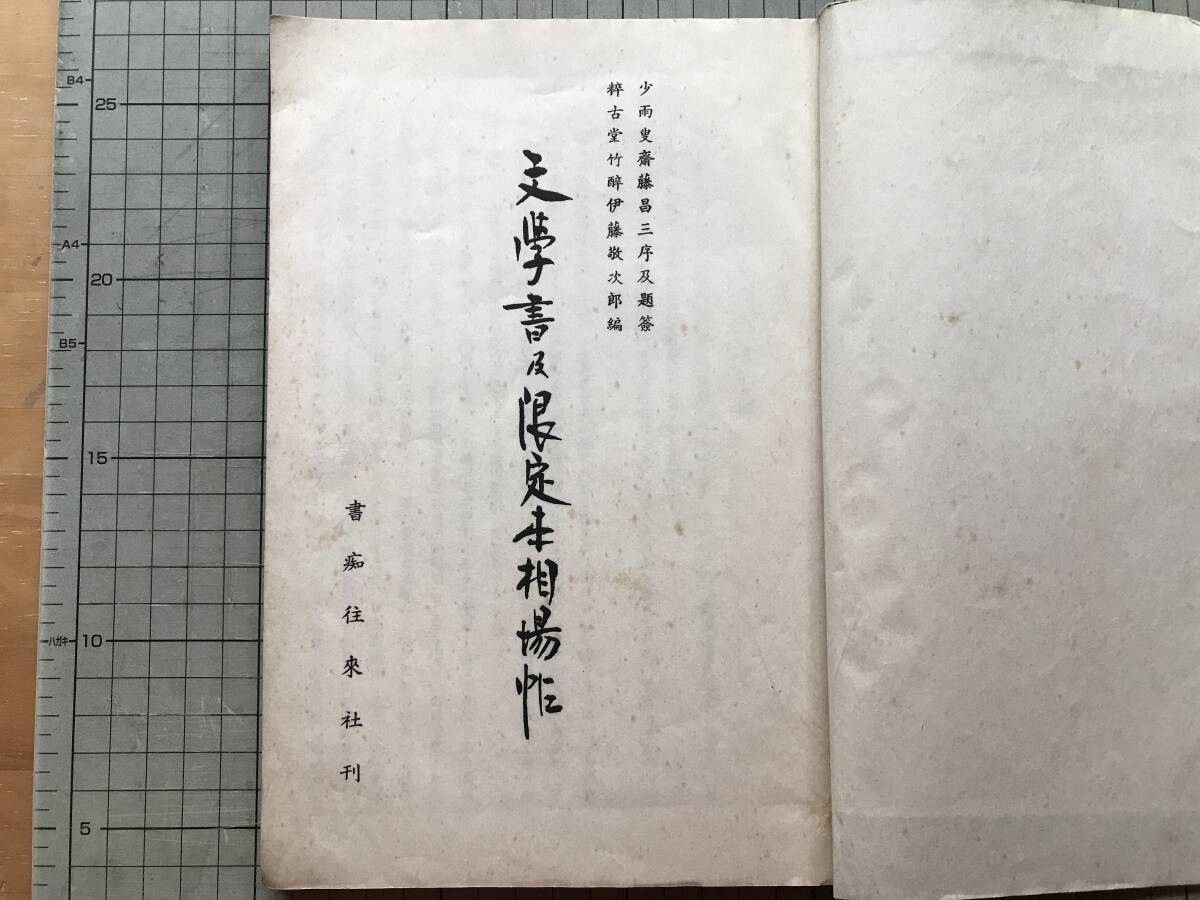 少雨叟齋藤昌三序及題簽
粹古堂竹醉伊藤敬次郎編
文學書及限定本相場帖
書痴往來社刊
B4
25
A4
20
B5
15
ハガキ
10
5